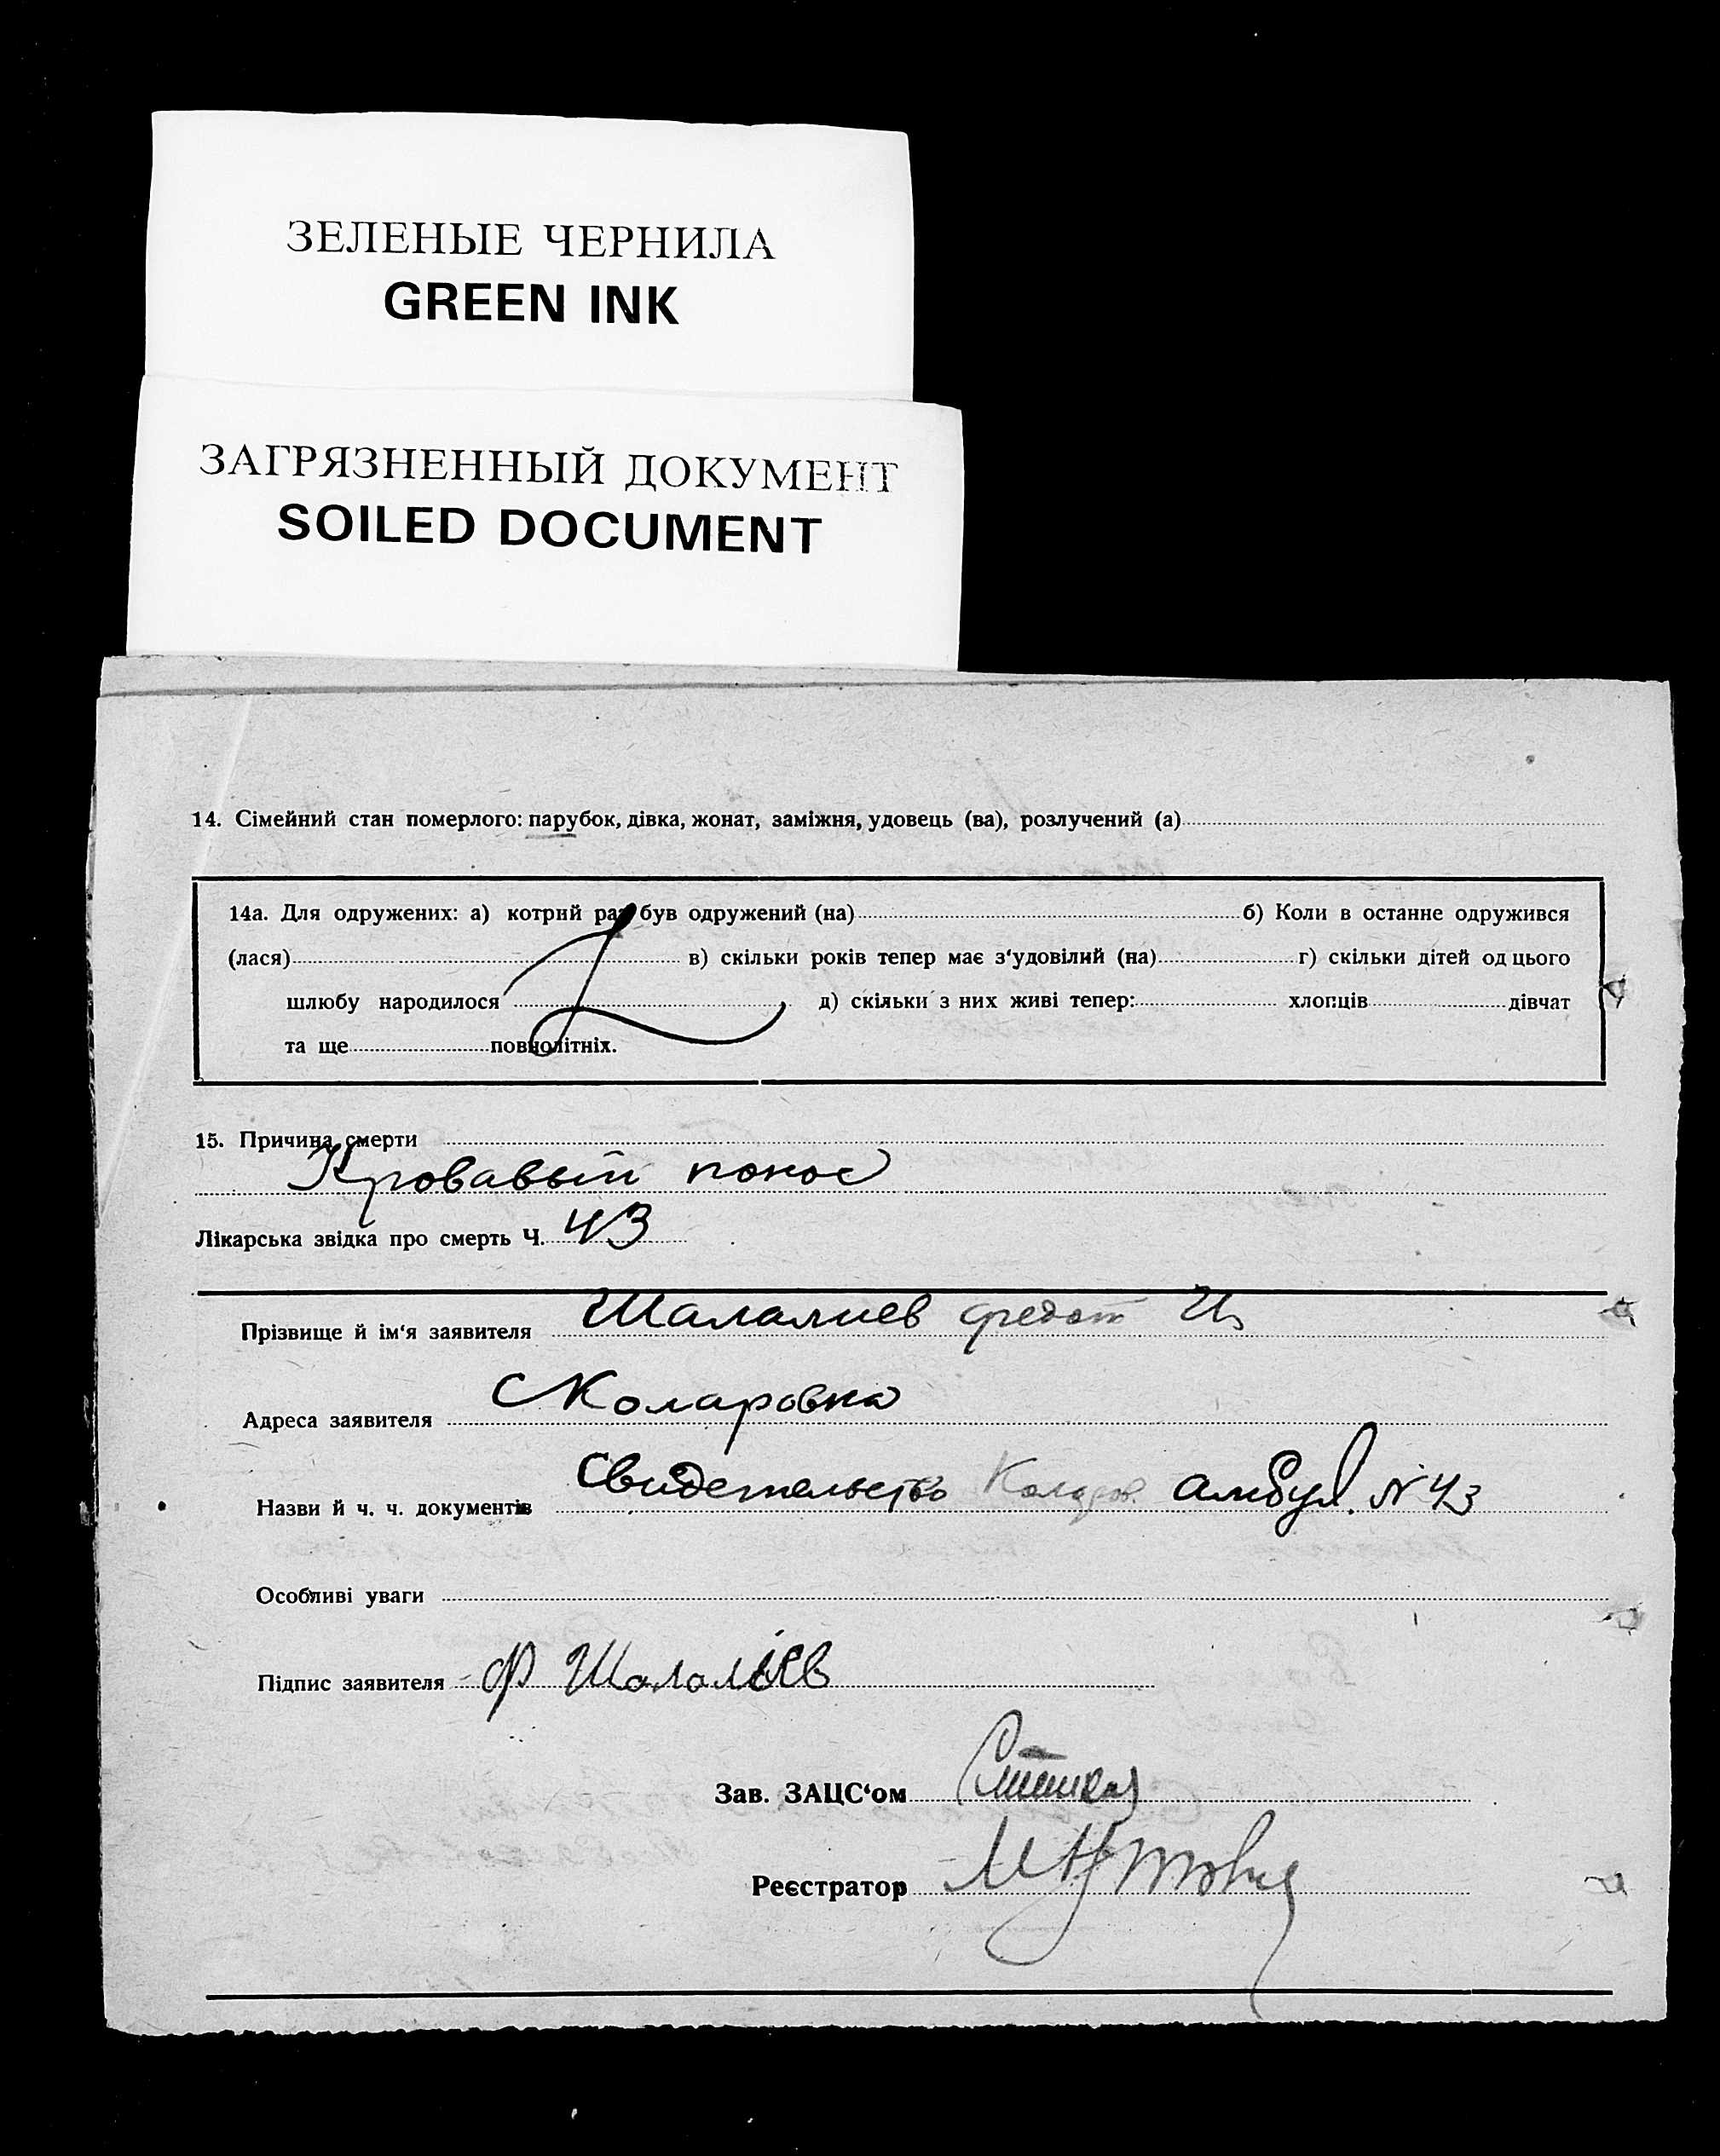 ЗЕЛЕНЫЕ ЧЕРНИЛА
GREEN INK
ЗАГРЯЗНЕННЫЙ ДОКУМЕНТ
SOILED DOCUMENT
14. Сімейний стан померлого: парубок, дівка, жонат, заміжня, удовець (ва), розлучений (а)
14а. Для одружених: а) котрий раз був одружений (на) б) Коли в останне одружився
(лася) в) скільки років тепер має з‘удовілий (на) г) скільки дітей од цього
шлюбу народилося д) скільки з них живі тепер: хлопців дівчат
та ще повнолітніх.
15. Причина смерти
Кровавый понос
Лікарська звідка про смерть Ч. 43
Прізвище й ім‘я заявителя Шалалиев Федот И
Адреса заявителя С Коларовка
Назви й ч. ч. документів Свидетельство Колоров. амбул. N 43
Особливі уваги
Підпис заявителя Ф Шалаліев
Зав. ЗАЦС‘ом
Реєстратор